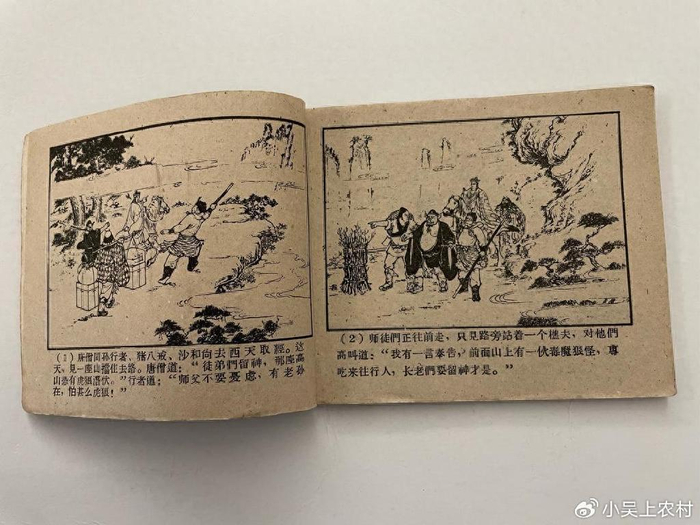 (1) 唐僧同孙行者、猪八戒、沙和尚去西天取經。这
天，見一座山擋住去路。唐僧道：“徒弟們留神，那座高
山恐有虎狼潛伏。”行者道：“师父不要憂虑，有老孙
在，怕甚么虎狼！”
(2) 师徒們正往前走，只見路旁站着一个樵夫，对他們
高叫道：“我有一言奉告，前面山上有一伙毒魔狠怪，專
吃来往行人，长老們要留神才是。”
@小吴上农村